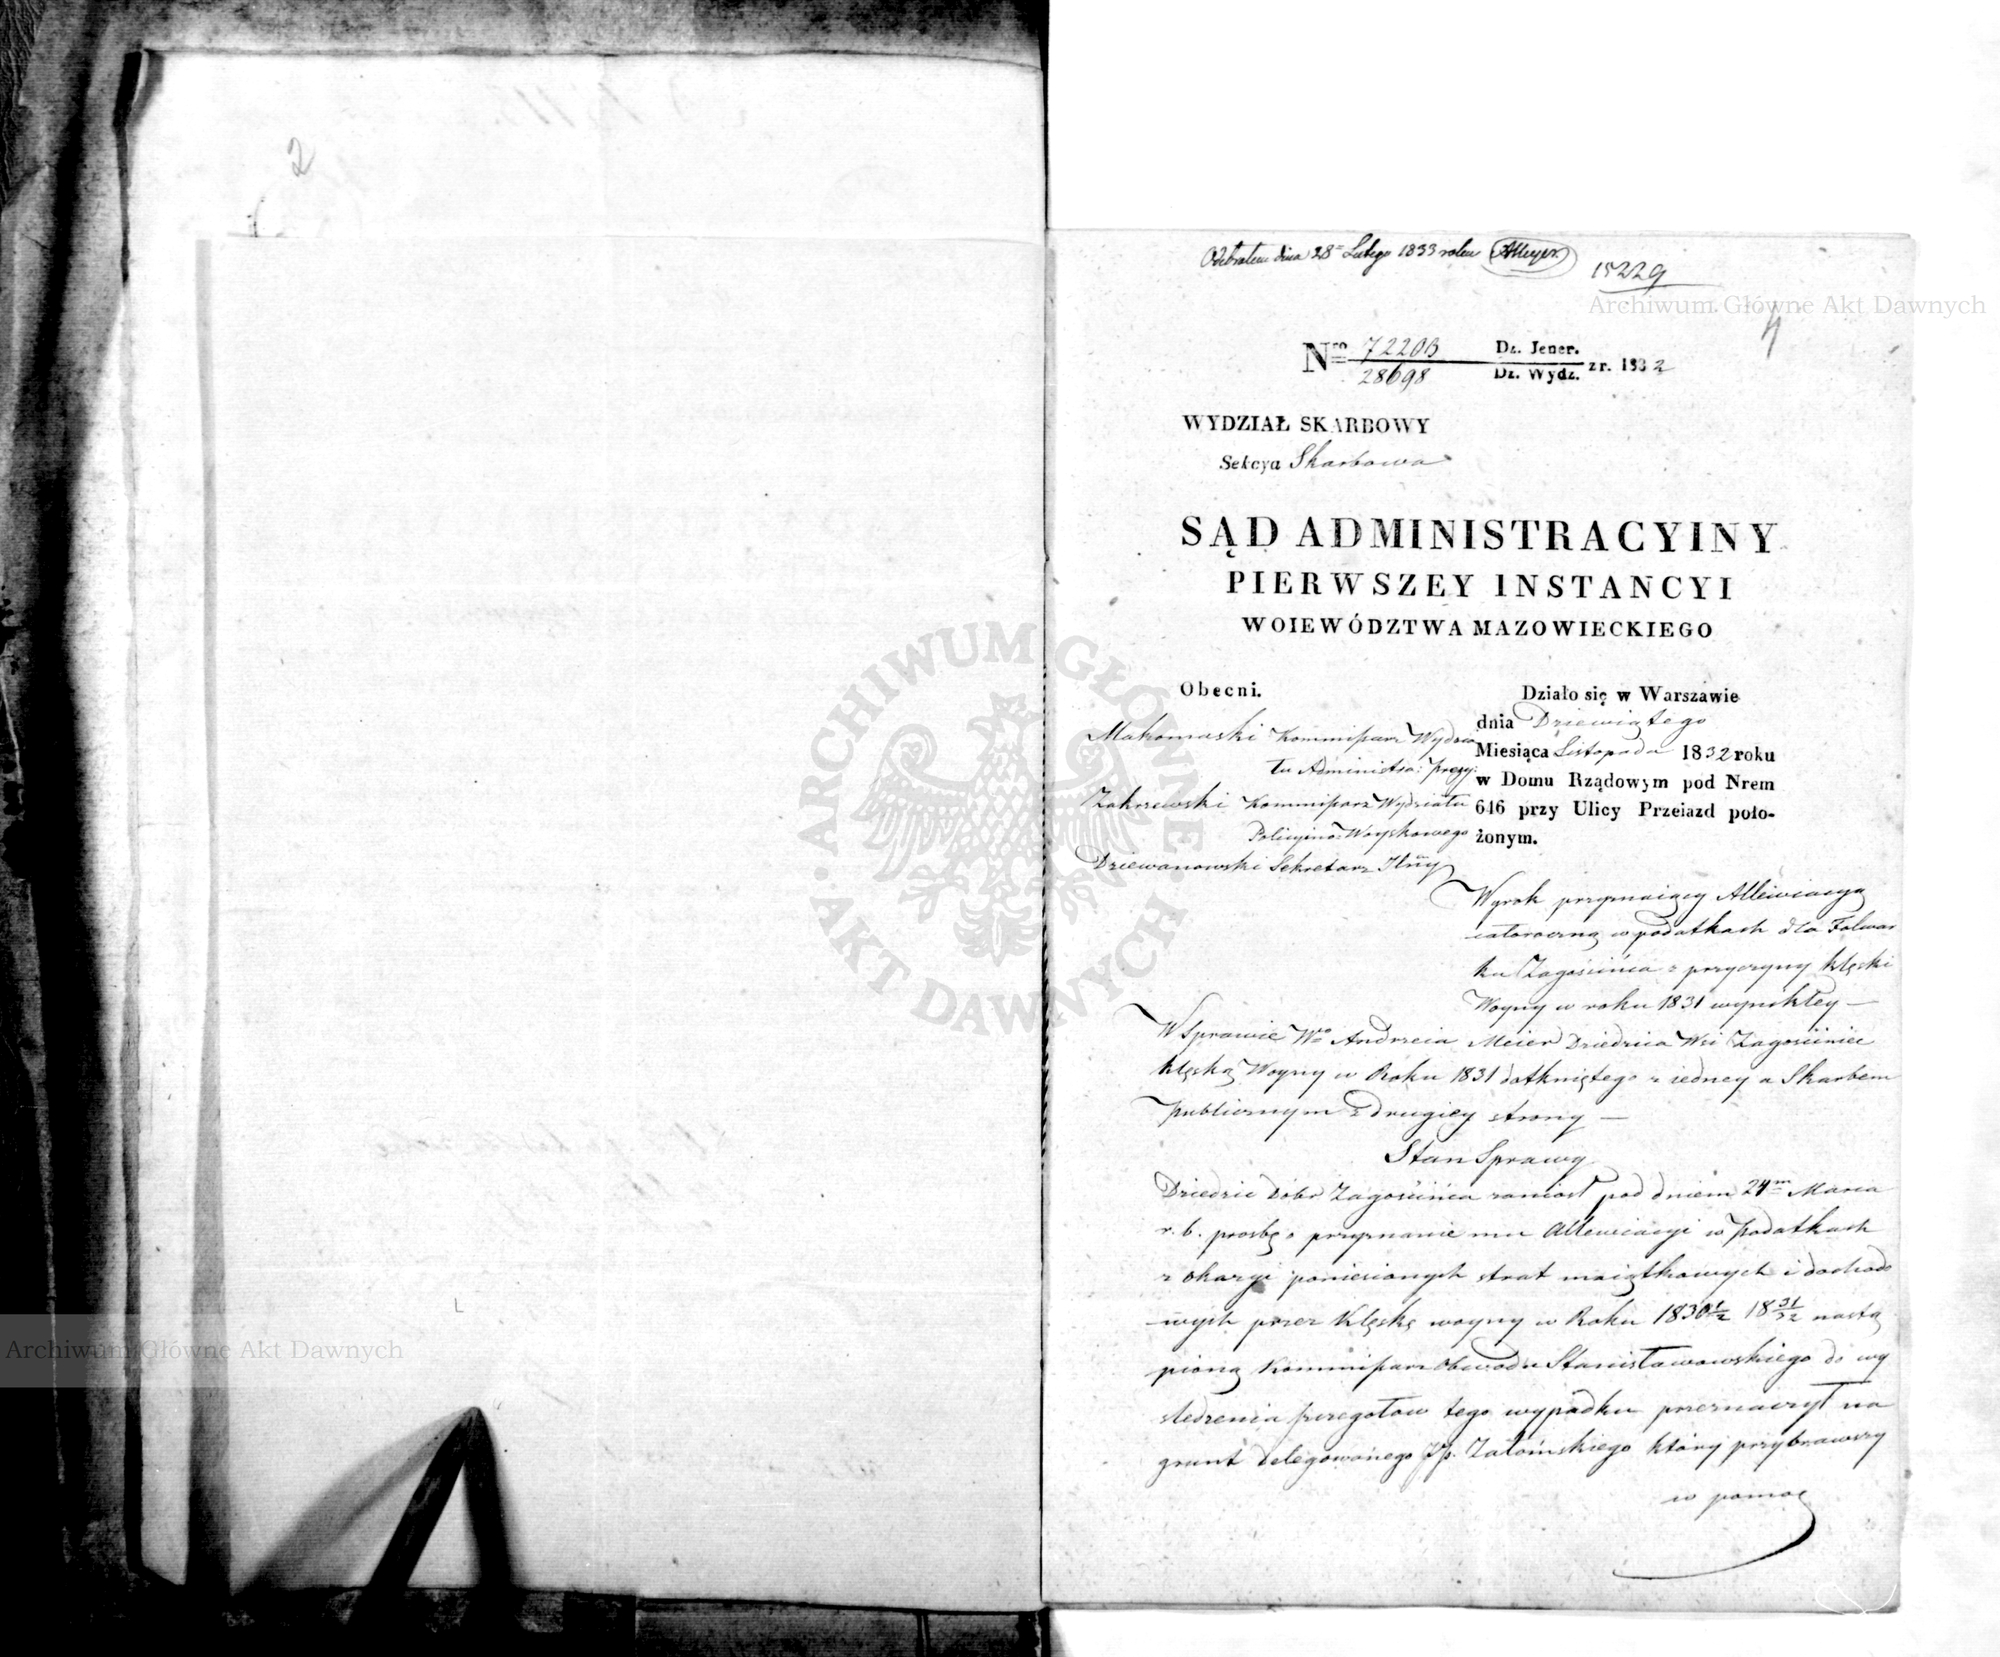 2
Odebrałem dnia 28 Lutego 1833 roku AMeyer
15229
Archiwum Główne Akt Dawnych
4
Nro 72203 Dz. Jener.
28698 Dz. Wydz. z r. 1832
WYDZIAŁ SKARBOWY
Sekcya Skarbowa
SĄD ADMINISTRACYINY
PIERWSZEY INSTANCYI
WOIEWÓDZTWA MAZOWIECKIEGO
Obecni.
Makomaski Kommissarz Wydzia
łu Administra: prezy:
Zakrzewski Kommissarz Wydziału
Policyino-Woyskowego
Dziewanowski Sekretarz
Działo się w Warszawie
dnia Dziewiątego
Miesiąca Listopada 1832 roku
w Domu Rządowym pod Nrem
646 przy Ulicy Przeiazd poło-
żonym.
Wyrok przyznaiący Allewiacyą
całoroczną w podatkach dla Folwar
ku Zagościńca z przyczyny klęski
Woyny w roku 1831 wynikłey —
W Sprawie Wo Andrzeia Meier Dziedzica Wsi Zagościniec
klęską Woyny w Roku 1831 dotkniętego z iedney a Skarbem
publicznym z drugiey strony —
Stan Sprawy
Dziedzic Dóbr Zagościńca zaniósł pod dniem 24m Marca
r. b. prośbę o przyznanie mu Allewiacyi w podatkach
z okazyi poniesionych strat maiątkowych i dochodo
wych przez klęskę woyny w Roku 1830/1 1831/32 nastą
pioną Kommissarz Obwodu Stanisławowskiego do wy
śledzenia szczegółow tego wypadku przeznaczył na
grunt delegowanego JP. Załomskiego który przybrawszy
w pomoc
ARCHIWUM GŁÓWNE AKT DAWNYCH
Archiwum Główne Akt Dawnych